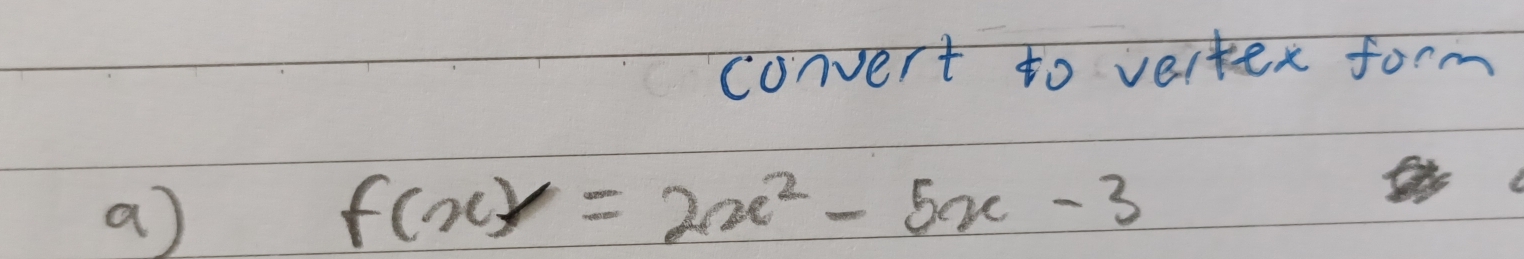 convert to vertex form
a) f(x) = 2x² - 5x - 3